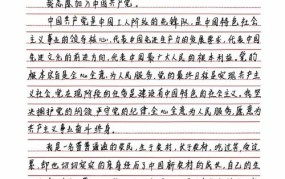 我志愿加入中国共产党。
中国共产党是中国工人阶级的先锋队，是中国特色社会
主义事业的领导核心，代表中国先进生产力的发展要求，代表中国
先进文化的前进方向，代表中国最广大人民的根本利益。党的
根本宗旨是全心全意为人民服务。党的最终目标是实现共产主
义社会，党在现阶段的任务是建设有中国特色的社会主义。我坚
决拥护党的纲领，严守党的纪律，全心全意为人民服务，愿意为
共产主义事业奋斗终身。
我是一名普普通通的农民，生于农村，长于农村，吃过苦，受过
累，即也切切实实的亲身经历了中国新农村的成长，自己的生